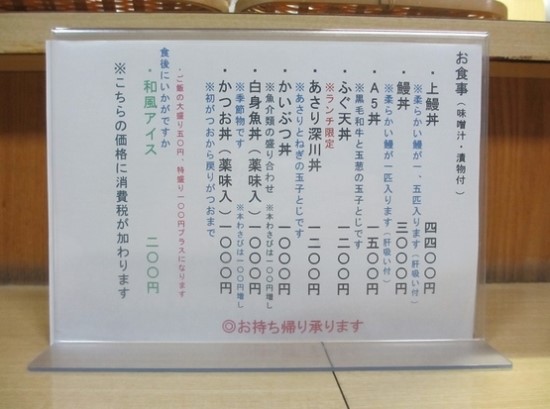 お食事（味噌汁・漬物付）
・上鰻丼 四四〇〇円
※柔らかい鰻が一、五匹入ります（肝吸い付）
・鰻丼 三〇〇〇円
※柔らかい鰻が一匹入ります（肝吸い付）
・A5丼 一五〇〇円
※黒毛和牛と玉葱の玉子とじです
・ふぐ天丼 一二〇〇円
※ランチ限定
・あさり深川丼 一二〇〇円
※あさりとねぎの玉子とじです
・かいぶつ丼 一〇〇〇円
※魚介類の盛り合わせ ※本わさびは一〇〇円増し
・白身魚丼（薬味入）一〇〇〇円
※季節物です ※本わさびは一〇〇円増し
・かつお丼（薬味入）一〇〇〇円
※初がつおから戻りがつおまで
・ご飯の大盛り五〇円、特盛り一〇〇円プラスになります
食後にいかがですか
・和風アイス 二〇〇円
※こちらの価格に消費税が加わります
◎お持ち帰り承ります